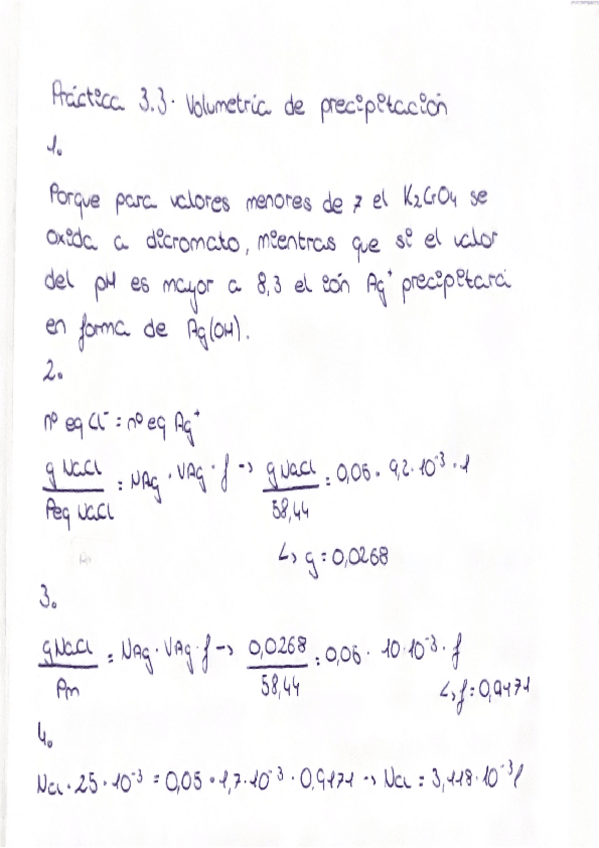 Práctica 3.3. Volumetría de precipitación
1.
Porque para valores menores de 7 el K₂CrO₄ se
oxida a dicromato, mientras que si el valor
del pH es mayor a 8,3 el ión Ag⁺ precipitará
en forma de Ag(OH).
2.
nº eq Cl⁻ = nº eq Ag⁺
g NaCl / Peq NaCl = NAg · VAg · f → g NaCl / 58,44 = 0,05 · 9,2 · 10⁻³ · 1
↳ g = 0,0268
3.
g NaCl / Pm = NAg · VAg · f → 0,0268 / 58,44 = 0,05 · 10·10⁻³ · f
↳ f = 0,9171
4.
NCl · 25 · 10⁻³ = 0,05 · 1,7 · 10⁻³ · 0,9171 → NCl = 3,118 · 10⁻³